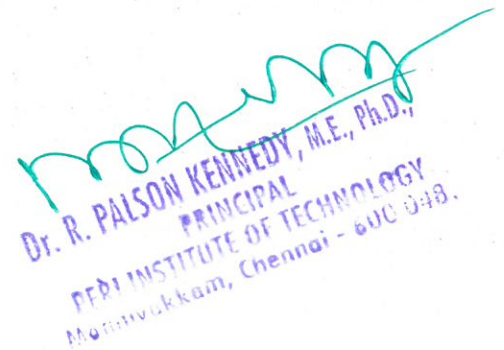 Dr. R. PALSON KENNEDY, M.E., Ph.D.,
PRINCIPAL
PERI INSTITUTE OF TECHNOLOGY
Mannivakkam, Chennai - 600 048.